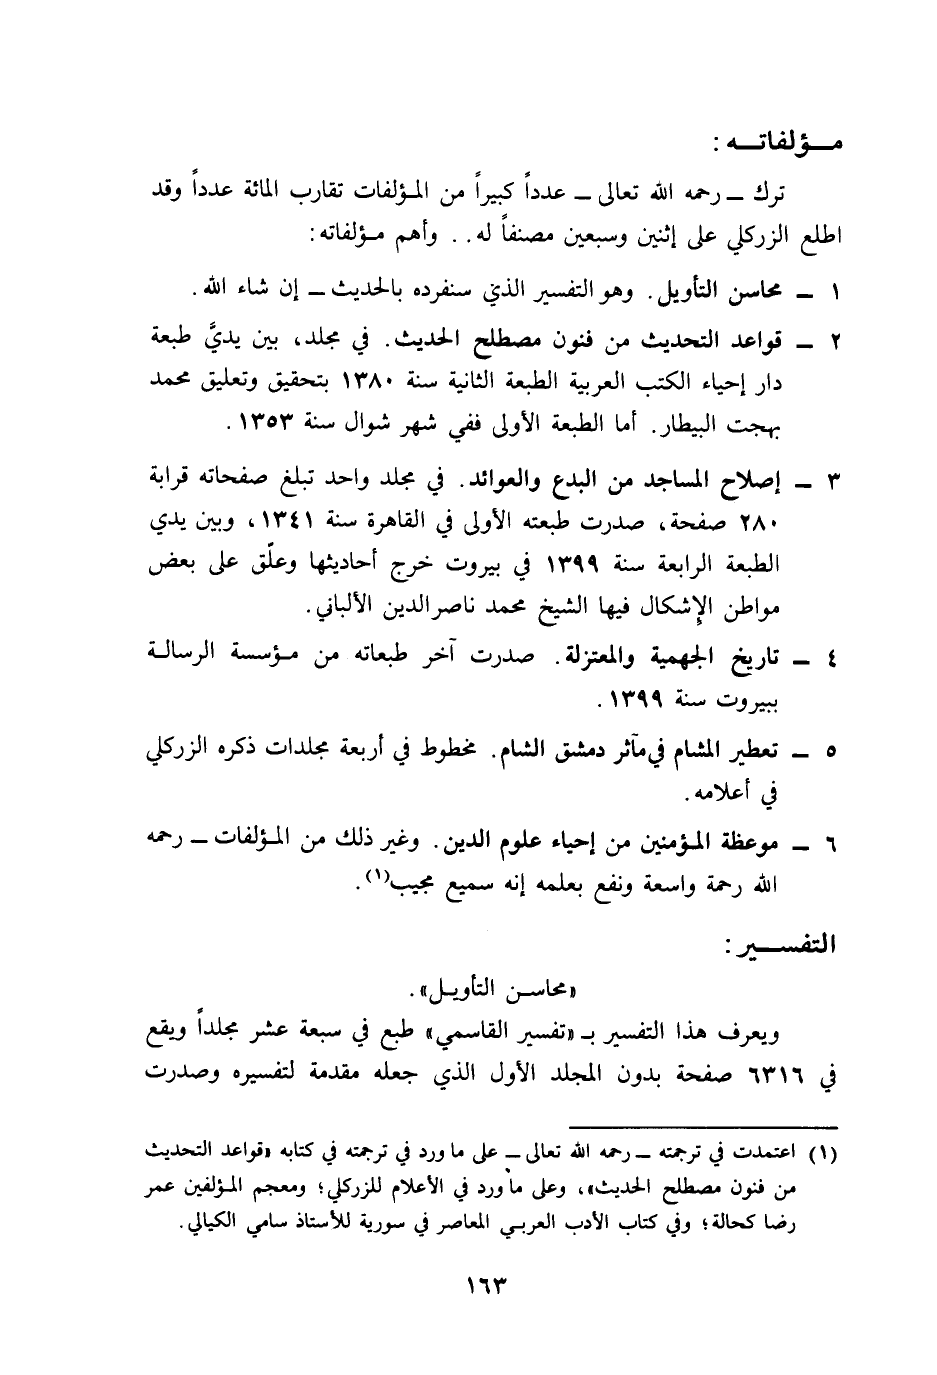 مـؤلفاتـه :
ترك – رحمه الله تعالى – عدداً كبيراً من المؤلفات تقارب المائة عدداً وقد
اطلع الزركلي على إثنين وسبعين مصنفاً له .. وأهم مـؤلفاته :
١ – محاسن التأويل . وهو التفسير الذي سنفرده بالحديث – إن شاء الله .
٢ – قواعد التحديث من فنون مصطلح الحديث . في مجلد، بين يديَّ طبعة
دار إحياء الكتب العربية الطبعة الثانية سنة ١٣٨٠ بتحقيق وتعليق محمد
بهجت البيطار. أما الطبعة الأولى ففي شهر شوال سنة ١٣٥٣ .
٣ – إصلاح المساجد من البدع والعوائد. في مجلد واحد تبلغ صفحاته قرابة
٢٨٠ صفحة، صدرت طبعته الأولى في القاهرة سنة ١٣٤١، وبين يدي
الطبعة الرابعة سنة ١٣٩٩ في بيروت خرج أحاديثها وعلّق على بعض
مواطن الإشكال فيها الشيخ محمد ناصر الدين الألباني .
٤ – تاريخ الجهمية والمعتزلة . صدرت آخر طبعاته من مـؤسسة الرسالـة
ببيروت سنة ١٣٩٩ .
٥ – تعطير المشام في مآثر دمشق الشام. مخطوط في أربعة مجلدات ذكره الزركلي
في أعلامه .
٦ – موعظة المـؤمنين من إحياء علوم الدين . وغير ذلك من المـؤلفات – رحمه
الله رحمة واسعة ونفع بعلمه إنه سميع مجيب(١) .
التفســـير :
«محاسـن التأويـل» .
ويعرف هذا التفسير بـ «تفسير القاسمي» طبع في سبعة عشر مجلداً ويقع
في ٦٣١٦ صفحة بدون المجلد الأول الذي جعله مقدمة لتفسيره وصدرت
(١) اعتمدت في ترجمته – رحمه الله تعالى – على ما ورد في ترجمته في كتابه «قواعد التحديث
من فنون مصطلح الحديث»، وعلى ما ورد في الأعلام للزركلي؛ ومعجم المـؤلفين عمر
رضا كحالة؛ وفي كتاب الأدب العربـي المعاصر في سورية للأستاذ سامي الكيالي .
١٦٣